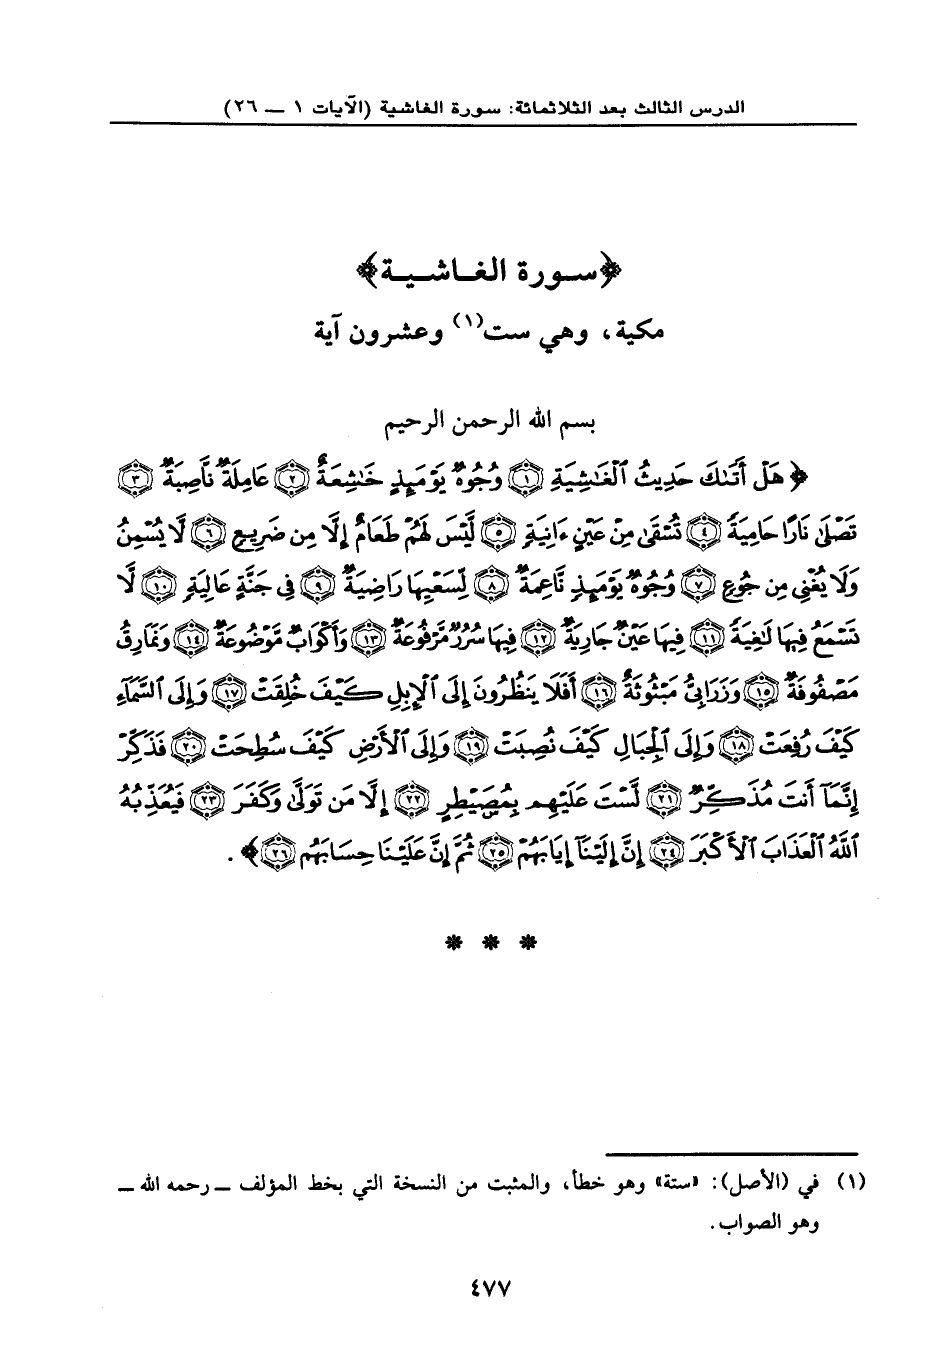 الدرس الثالث بعد الثلاثمائة: سورة الغاشية (الآيات ١ — ٢٦)
﴿سورة الغاشية﴾
مكية، وهي ست(١) وعشرون آية
بسم الله الرحمن الرحيم
﴿هَلْ أَتَىٰكَ حَدِيثُ ٱلْغَـٰشِيَةِ ١ وُجُوهٌ يَوْمَئِذٍ خَـٰشِعَةٌ ٢ عَامِلَةٌ نَّاصِبَةٌ ٣
تَصْلَىٰ نَارًا حَامِيَةً ٤ تُسْقَىٰ مِنْ عَيْنٍ ءَانِيَةٍ ٥ لَّيْسَ لَهُمْ طَعَامٌ إِلَّا مِن ضَرِيعٍ ٦ لَّا يُسْمِنُ
وَلَا يُغْنِى مِن جُوعٍ ٧ وُجُوهٌ يَوْمَئِذٍ نَّاعِمَةٌ ٨ لِّسَعْيِهَا رَاضِيَةٌ ٩ فِى جَنَّةٍ عَالِيَةٍ ١٠ لَّا
تَسْمَعُ فِيهَا لَـٰغِيَةً ١١ فِيهَا عَيْنٌ جَارِيَةٌ ١٢ فِيهَا سُرُرٌ مَّرْفُوعَةٌ ١٣ وَأَكْوَابٌ مَّوْضُوعَةٌ ١٤ وَنَمَارِقُ
مَصْفُوفَةٌ ١٥ وَزَرَابِىُّ مَبْثُوثَةٌ ١٦ أَفَلَا يَنظُرُونَ إِلَى ٱلْإِبِلِ كَيْفَ خُلِقَتْ ١٧ وَإِلَى ٱلسَّمَآءِ
كَيْفَ رُفِعَتْ ١٨ وَإِلَى ٱلْجِبَالِ كَيْفَ نُصِبَتْ ١٩ وَإِلَى ٱلْأَرْضِ كَيْفَ سُطِحَتْ ٢٠ فَذَكِّرْ
إِنَّمَآ أَنتَ مُذَكِّرٌ ٢١ لَّسْتَ عَلَيْهِم بِمُصَيْطِرٍ ٢٢ إِلَّا مَن تَوَلَّىٰ وَكَفَرَ ٢٣ فَيُعَذِّبُهُ
ٱللَّهُ ٱلْعَذَابَ ٱلْأَكْبَرَ ٢٤ إِنَّ إِلَيْنَآ إِيَابَهُمْ ٢٥ ثُمَّ إِنَّ عَلَيْنَا حِسَابَهُم ٢٦﴾.
* * *
(١) في (الأصل): «ستة» وهو خطأ، والمثبت من النسخة التي بخط المؤلف — رحمه الله —
وهو الصواب.
٤٧٧